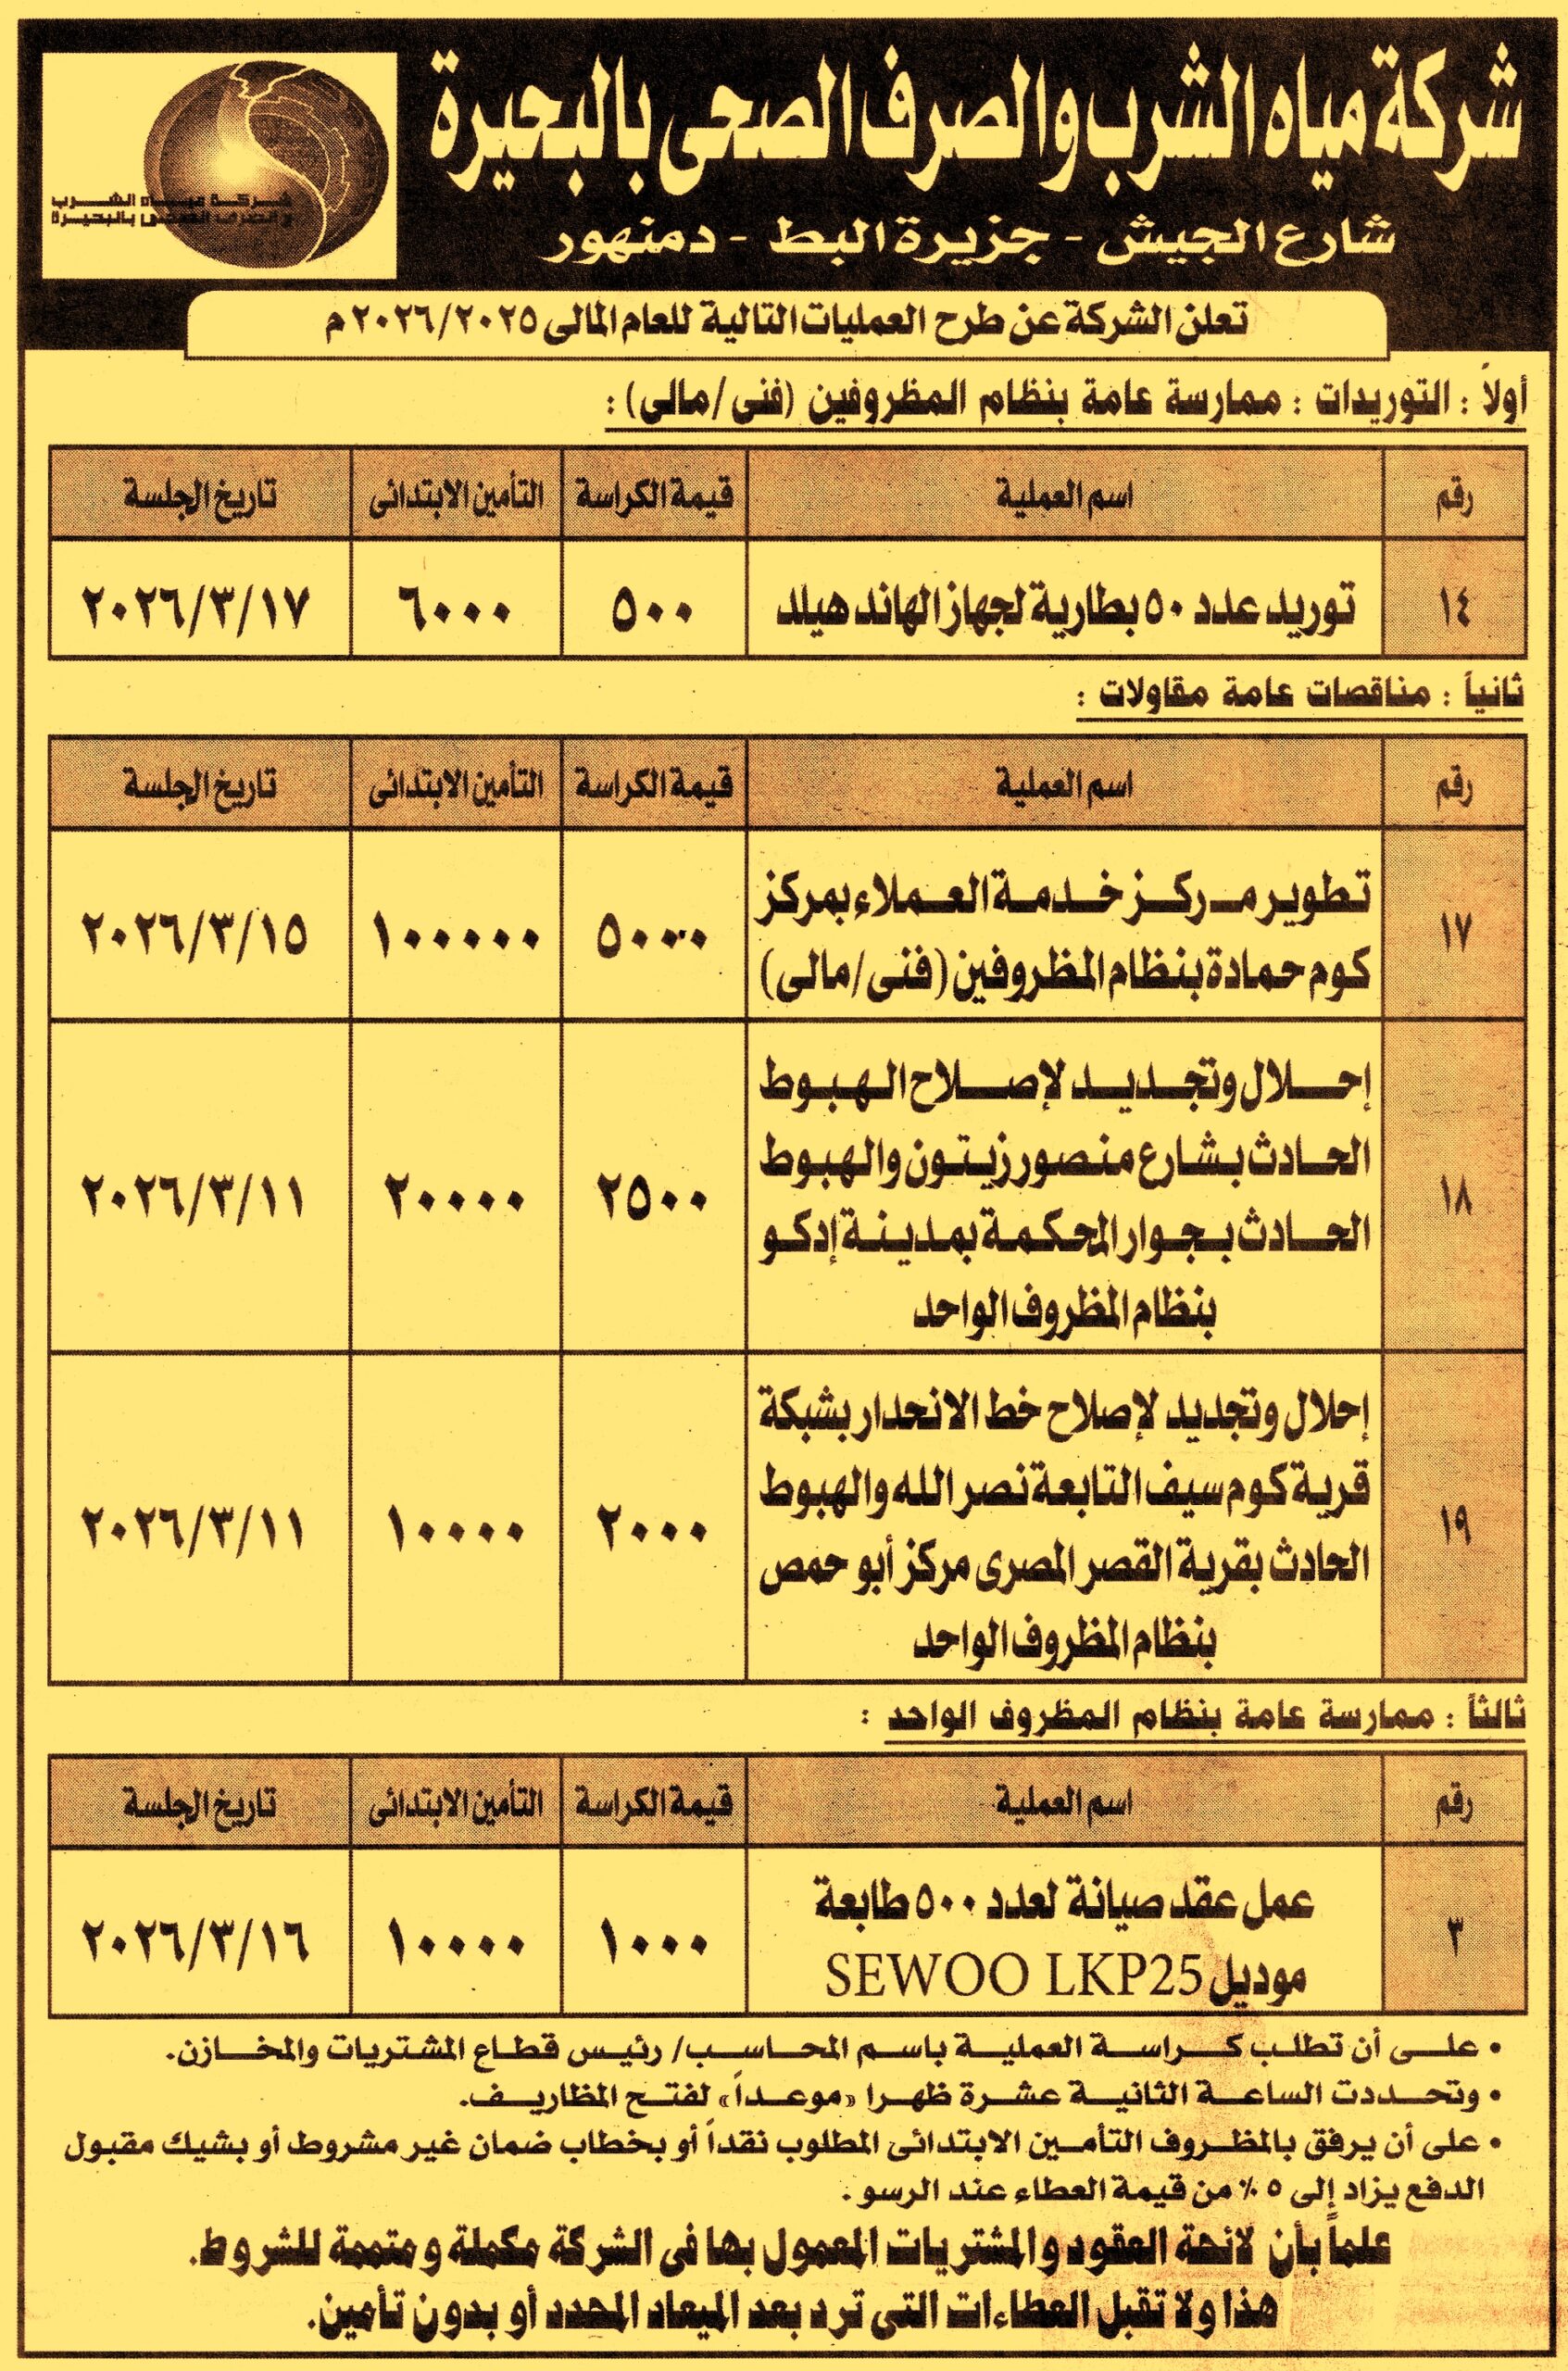 شركة مياه الشرب والصرف الصحى بالبحيرة
شركة مياه الشرب
والصرف الصحى بالبحيرة
شارع الجيش - جزيرة البط - دمنهور
تعلن الشركة عن طرح العمليات التالية للعام المالى ٢٠٢٦/٢٠٢٥ م
أولاً : التوريدات : ممارسة عامة بنظام المظروفين (فنى/مالى) :
رقم اسم العملية قيمة الكراسة التأمين الابتدائى تاريخ الجلسة
١٤ توريد عدد ٥٠ بطارية لجهاز الهاند هيلد ٥٠٠ ٦٠٠٠ ٢٠٢٦/٣/١٧
ثانياً : مناقصات عامة مقاولات :
رقم اسم العملية قيمة الكراسة التأمين الابتدائى تاريخ الجلسة
تطوير مركز خدمة العملاء بمركز
١٧ ٥٠٠٠ ١٠٠٠٠٠ ٢٠٢٦/٣/١٥
كوم حمادة بنظام المظروفين (فنى/مالى)
إحلال وتجديد لإصلاح الهبوط
الحادث بشارع منصور زيتون والهبوط
١٨ ٢٥٠٠ ٢٠٠٠٠ ٢٠٢٦/٣/١١
الحادث بجوار المحكمة بمدينة إدكو
بنظام المظروف الواحد
إحلال وتجديد لإصلاح خط الانحدار بشبكة
قرية كوم سيف التابعة نصر الله والهبوط
١٩ ٢٠٠٠ ١٠٠٠٠ ٢٠٢٦/٣/١١
الحادث بقرية القصر المصرى مركز أبو حمص
بنظام المظروف الواحد
ثالثاً : ممارسة عامة بنظام المظروف الواحد :
رقم اسم العملية قيمة الكراسة التأمين الابتدائى تاريخ الجلسة
عمل عقد صيانة لعدد ٥٠٠ طابعة
٣ ١٠٠٠ ١٠٠٠٠ ٢٠٢٦/٣/١٦
موديل SEWOO LKP25
• على أن تطلب كراسة العملية باسم المحاسب/ رئيس قطاع المشتريات والمخازن.
• وتحددت الساعة الثانية عشرة ظهرا «موعداً» لفتح المظاريف.
• على أن يرفق بالمظروف التأمين الابتدائى المطلوب نقداً أو بخطاب ضمان غير مشروط أو بشيك مقبول
الدفع يزاد إلى ٥ ٪ من قيمة العطاء عند الرسو .
علماً بأن لائحة العقود والمشتريات المعمول بها فى الشركة مكملة ومتممة للشروط.
هذا ولا تقبل العطاءات التى ترد بعد الميعاد المحدد أو بدون تأمين.